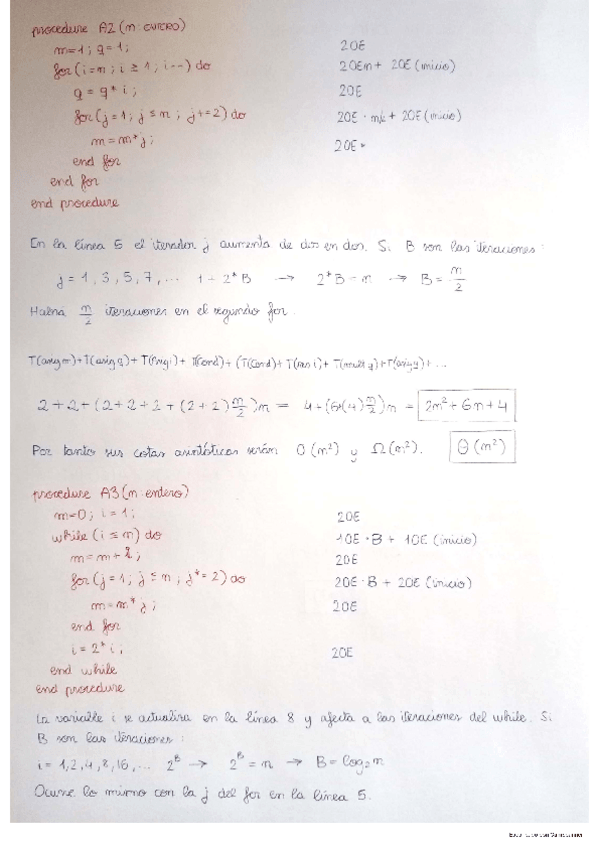 procedure A2 (n: entero)
m=1; q=1; 2OE
for (i=n; i ≥ 1; i--) do 2OE·n + 2OE (inicio)
q = q * i; 2OE
for (j=1; j ≤ n; j+=2) do 2OE · n/2 + 2OE (inicio)
m = m*j; 2OE
end for
end for
end procedure
En la línea 5 el iterador j aumenta de dos en dos. Si B son las iteraciones:
j = 1, 3, 5, 7, ... 1 + 2*B → 2*B = n → B = n/2
Habrá n/2 iteraciones en el segundo for.
T(asig m) + T(asig q) + T(Asig i) + T(cond) + (T(cond) + T(ins i) + T(mult q) + T(asig q) + ...
2 + 2 + (2 + 2 + 2 + (2 + 2) n/2) n = 4 + (6 + (4) n/2) n = 2n² + 6n + 4
Por tanto sus cotas asintóticas serán O(n²) y Ω(n²). Θ(n²)
procedure A3 (n: entero)
m=0; i=1; 2OE
while (i ≤ n) do 1OE · B + 1OE (inicio)
m = m + i; 2OE
for (j=1; j ≤ n; j*=2) do 2OE · B + 2OE (inicio)
m = m*j; 2OE
end for
i = 2*i; 2OE
end while
end procedure
La variable i se actualiza en la línea 8 y afecta a las iteraciones del while. Si
B son las iteraciones:
i = 1, 2, 4, 8, 16, ... 2^B → 2^B = n → B = log₂n
Ocurre lo mismo con la j del for en la línea 5.